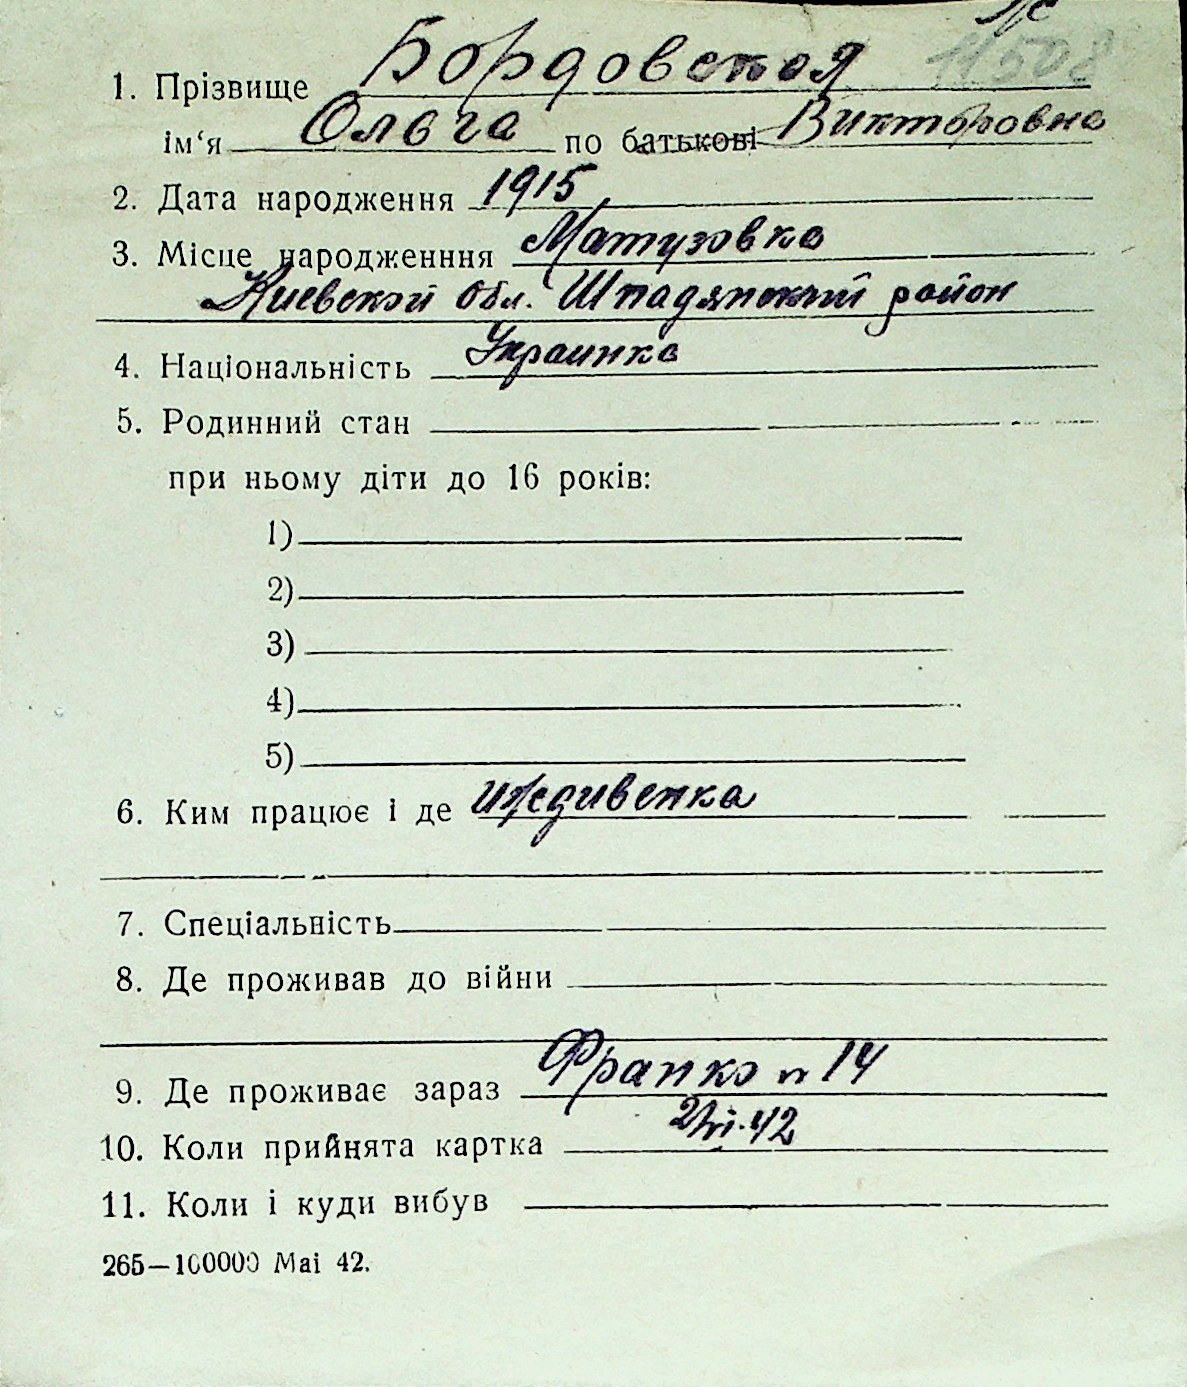 11508
1. Прізвище Бордовская
ім‘я Ольга по батькові Викторовна
2. Дата народження 1915
3. Місце народженння Матузовка
Киевской обл. Шпадянский район
4. Національність Украинка
5. Родинний стан
при ньому діти до 16 років:
1)
2)
3)
4)
5)
6. Ким працює і де иждивенка
7. Спеціальність
8. Де проживав до війни
9. Де проживає зараз Франко 14
10. Коли прийнята картка 2/VI-42
11. Коли і куди вибув
265—100000 Mai 42.